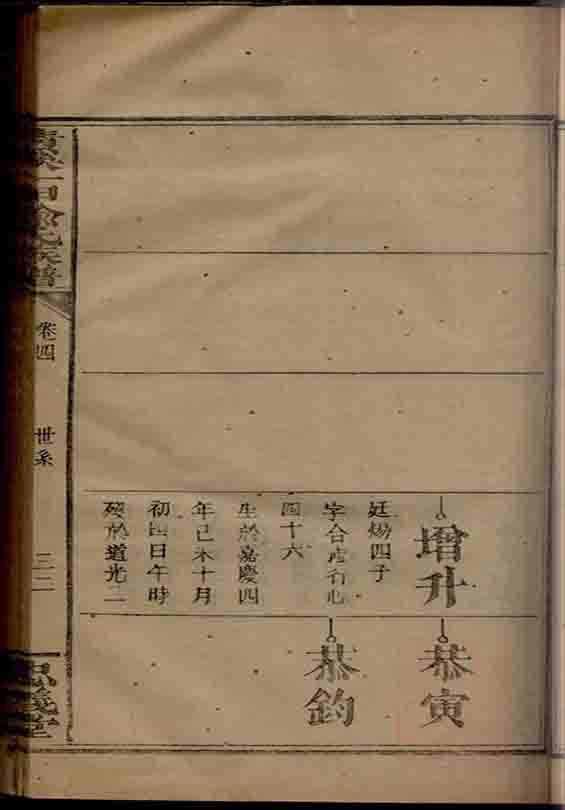 增升
廷煬四子
字合
四十六
生於嘉慶四
年己未十月
初四日午時
歿於道光二
恭寅
恭鈞
氏族譜
卷四
世系
三二
思義堂